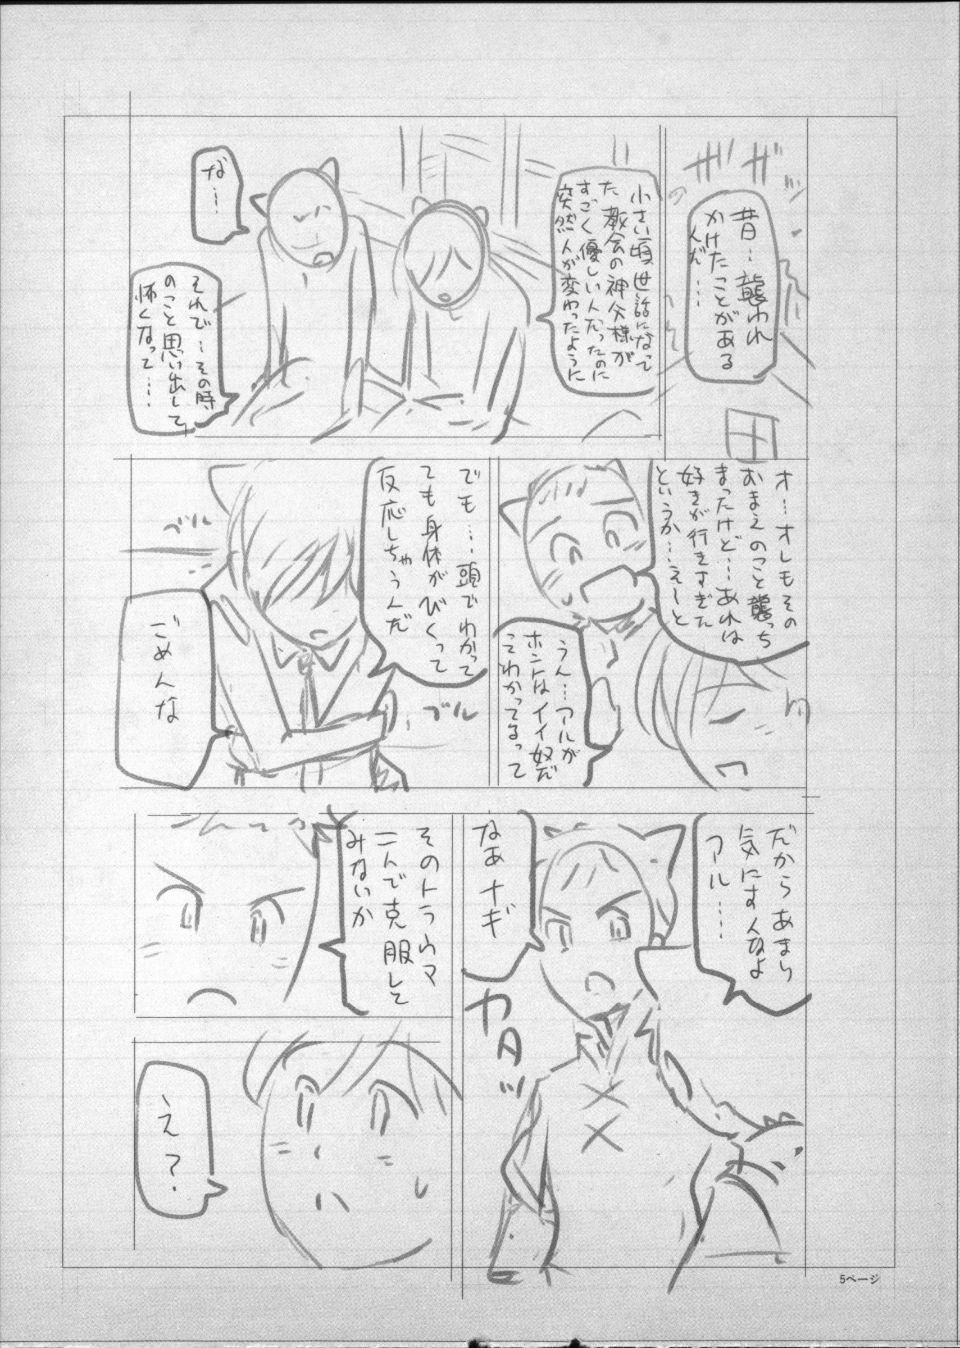 ザザッ
昔…襲われ
かけたことがある
んだ……
小さい頃世話になっ
た教会の神父様が
すごく優しい人だったのに
突然人が変わったように
な…
それで…その時
のこと思い出して
怖くなって……
オ…オレもその
おまえのこと襲っち
まったけど…あれは
好きが行きすぎた
というか…えーと
うん…アルが
ホントはイイ奴だ
ってわかってるって
でも…頭でわかって
ても身体がびくって
反応しちゃうんだ
ブル
ブル
ごめんな
だからあまり
気にすんなよ
アル……
なあナギ
カタッ
そのトラウマ
二人で克服して
みないか
え?
5ページ